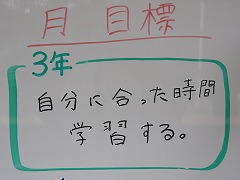 月 目標
3年
自分に合った時間
学習する。